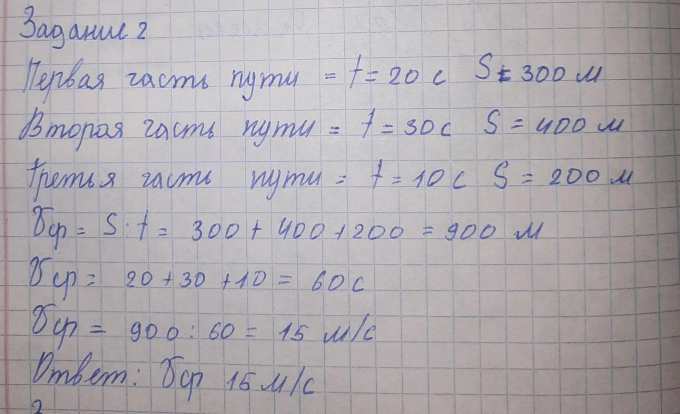 Задание 2
Первая часть пути = t = 20 с S = 300 м
Вторая часть пути = t = 30 с S = 400 м
Третья часть пути = t = 10 с S = 200 м
Vср = S : t = 300 + 400 + 200 = 900 м
Vср = 20 + 30 + 10 = 60 с
Vср = 900 : 60 = 15 м/с
Ответ: Vср 15 м/с